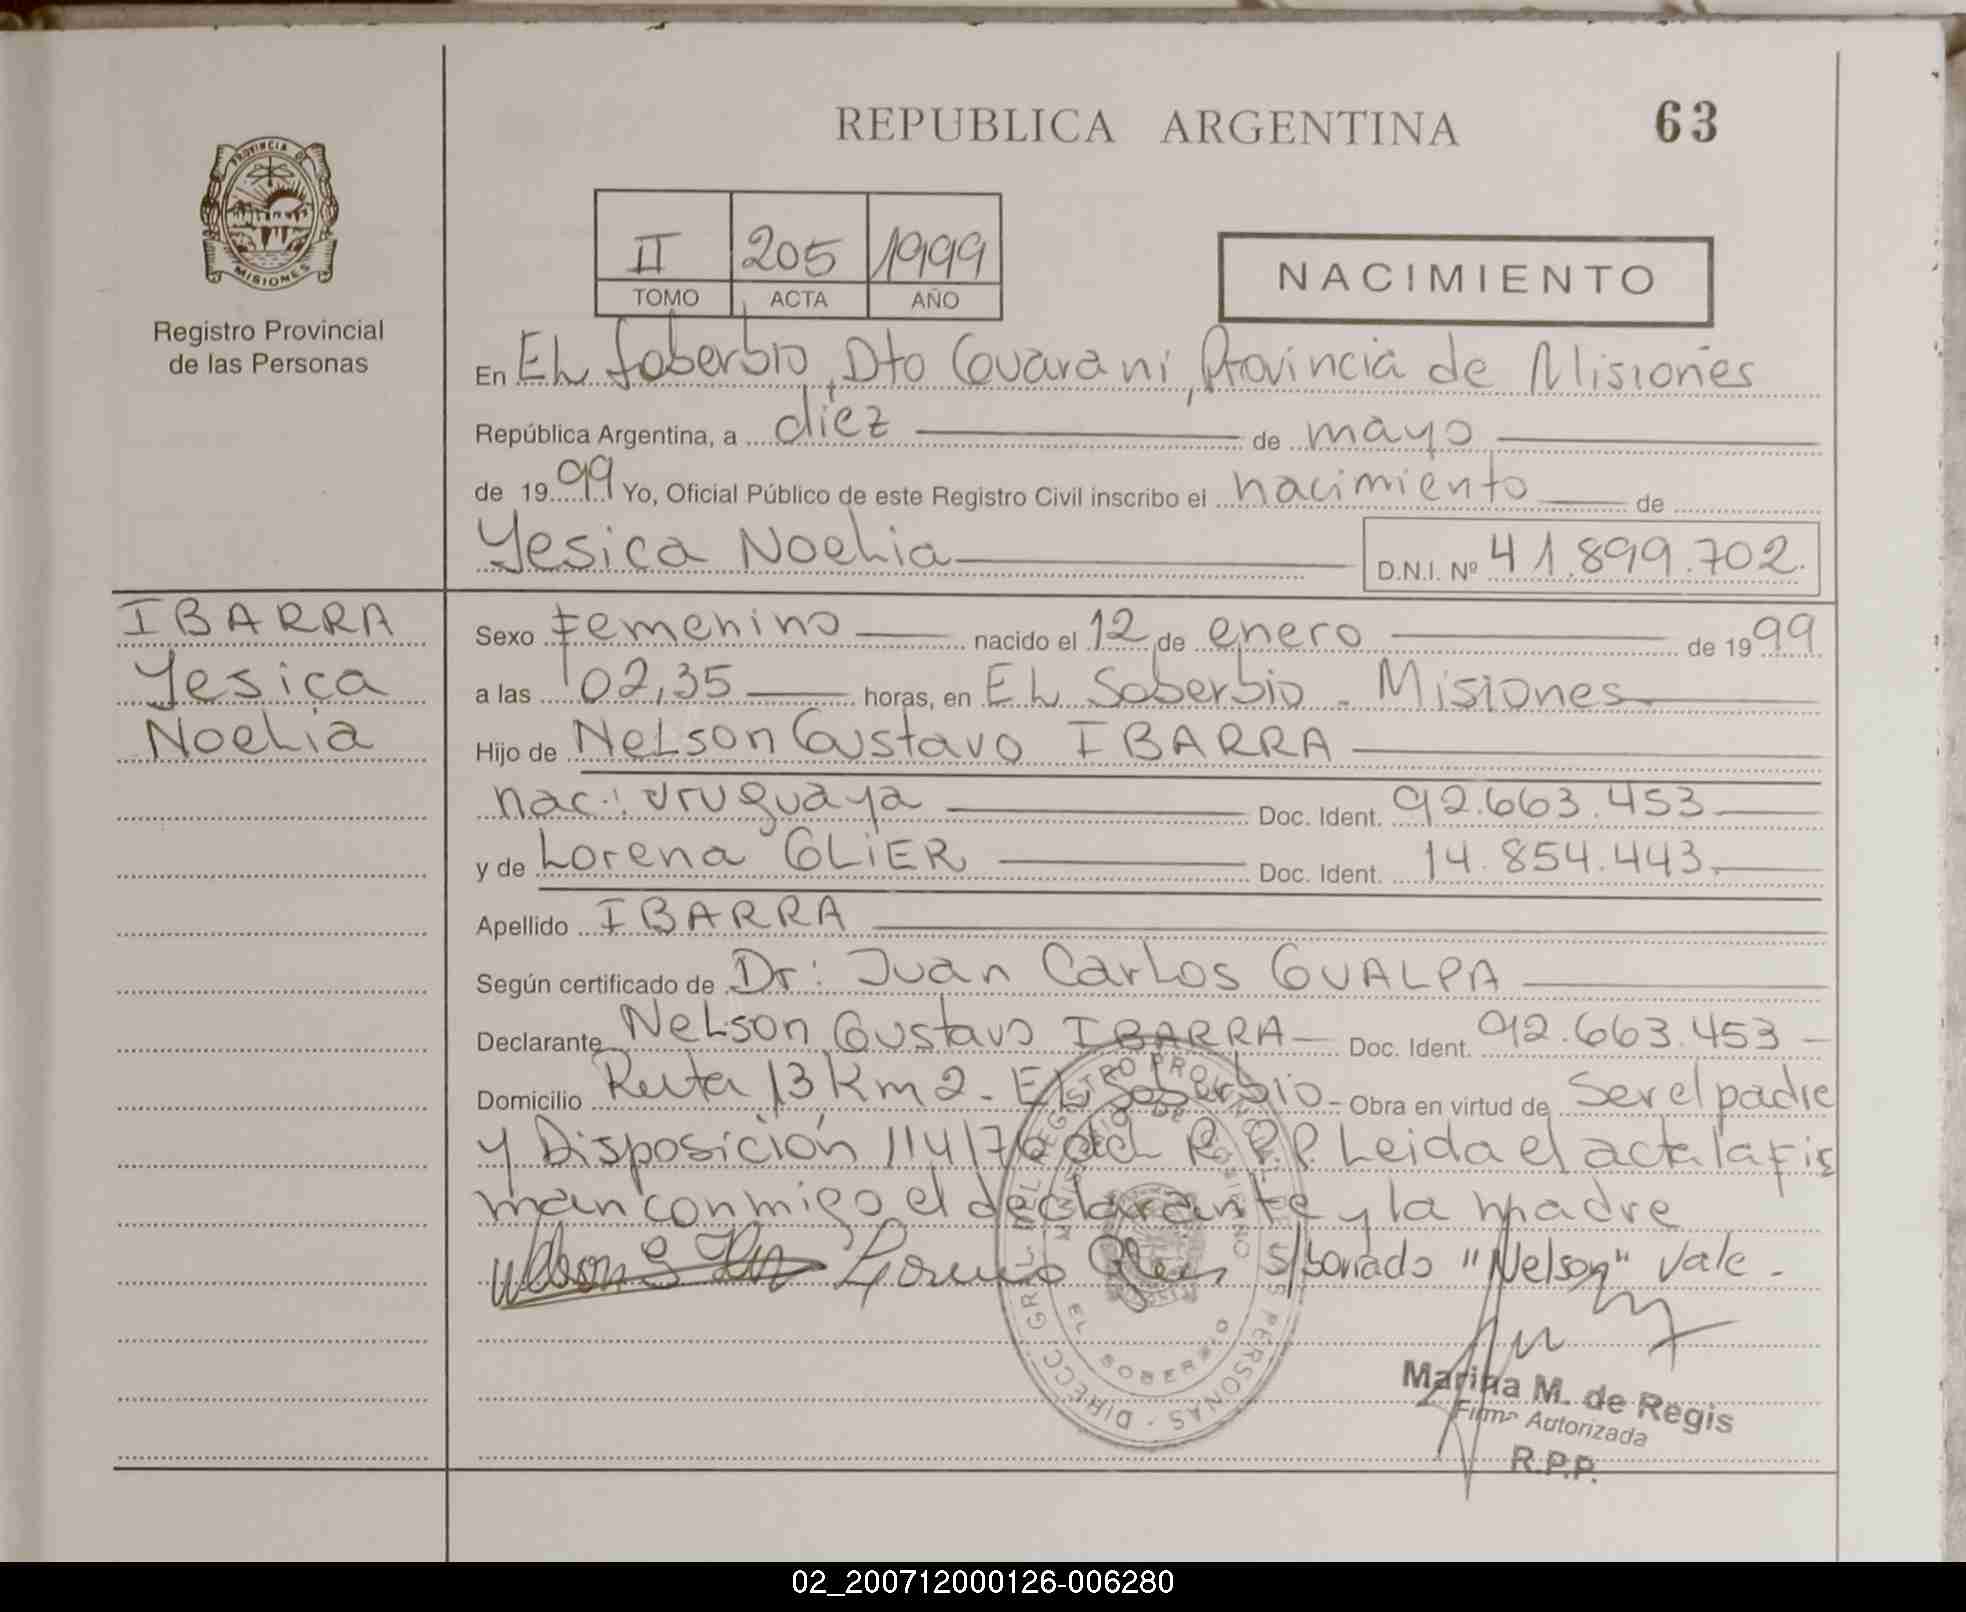 REPUBLICA ARGENTINA
63
PROVINCIA DE
MISIONES
Registro Provincial
de las Personas
II 205 1999
TOMO ACTA AÑO
NACIMIENTO
En EL Soberbio, Dto Guarani, Provincia de Misiones
República Argentina, a diez de mayo
de 1999 Yo, Oficial Público de este Registro Civil inscribo el nacimiento de
Yesica Noelia D.N.I. Nº 41.899.702.
IBARRA
Yesica
Noelia
Sexo Femenino nacido el 12 de enero de 1999
a las 02,35 horas, en EL Soberbio - Misiones
Hijo de Nelson Gustavo IBARRA
nac: uruguaya Doc. Ident. 92.663.453
y de Lorena GLIER Doc. Ident. 14.854.443.
Apellido IBARRA
Según certificado de Dr: Juan Carlos GUALPA
Declarante Nelson Gustavo IBARRA Doc. Ident. 92.663.453
Domicilio Ruta 13 Km 2 - EL Soberbio - Obra en virtud de ser el padre
y Disposición 114/76 del R.P.P. Leida el acta la fir
man conmigo el declarante y la madre
s/borrado "Nelson" Vale -
EL SOBERBIO
Marina M. de Regis
Firma Autorizada
R.P.P.
02_200712000126-006280